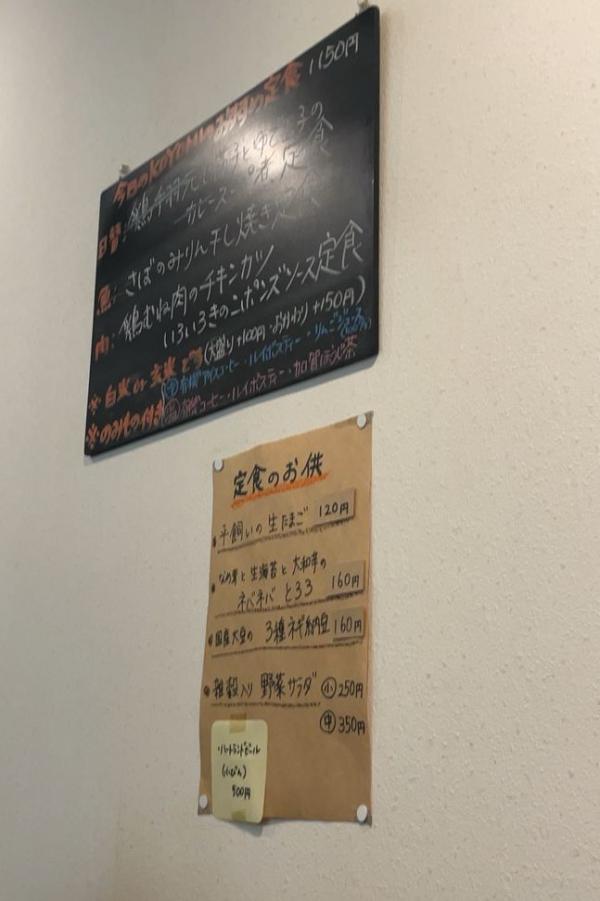 今日のKOYOMIのお昼の定食 1150円
日替: 鶏手羽元と ゆで玉子の
定食
魚: さばのみりん干し焼き定食
肉: 鶏むね肉のチキンカツ
いろいろきのこポンズソース定食
※白米or玄米 (大盛り+100円・おかわり+150円)
※のみもの付き 冷 有機アイスコーヒー・ルイボスティー・りんごジュース
温 有機コーヒー・ルイボスティー・加賀ほうじ茶
定食のお供
平飼いの生たまご 120円
なめ茸と生海苔と大和芋の
ネバネバとろろ 160円
国産大豆の 3種ネギ納豆 160円
雑穀入り 野菜サラダ 小 250円
中 350円
ハートランドビール
(小びん)
500円